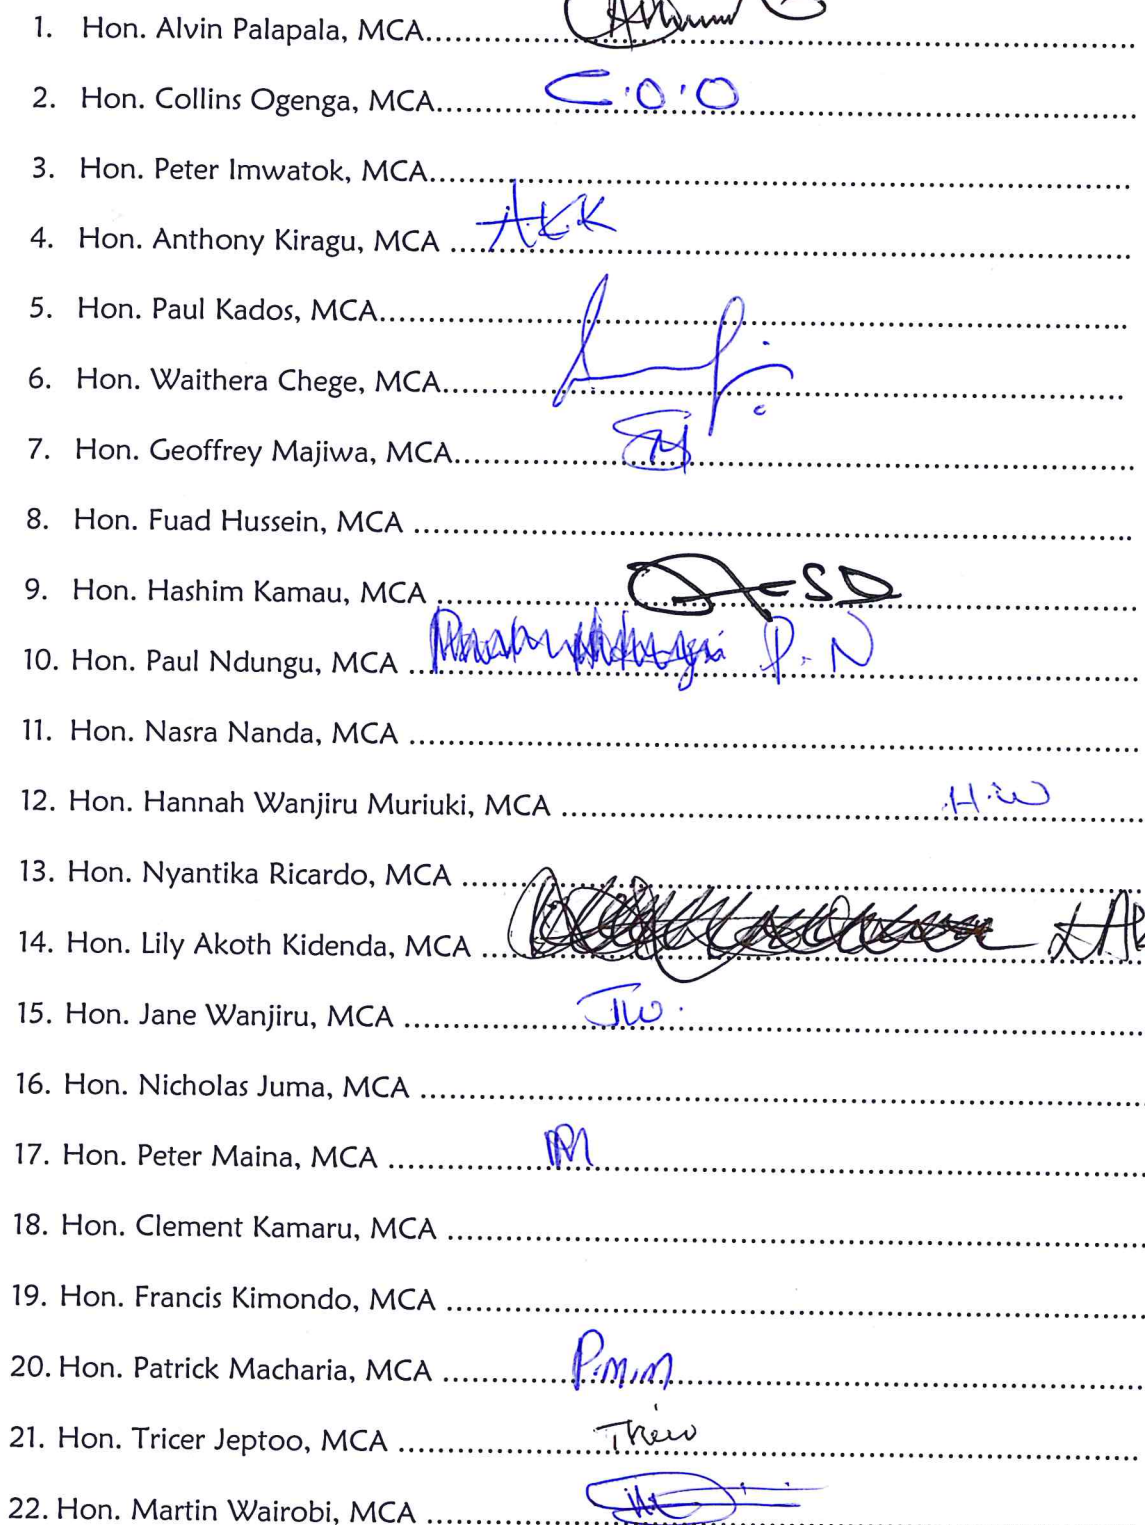 1. Hon. Alvin Palapala, MCA
2. Hon. Collins Ogenga, MCA C.O.O
3. Hon. Peter Imwatok, MCA
4. Hon. Anthony Kiragu, MCA AKK
5. Hon. Paul Kados, MCA
6. Hon. Waithera Chege, MCA
7. Hon. Geoffrey Majiwa, MCA
8. Hon. Fuad Hussein, MCA
9. Hon. Hashim Kamau, MCA
10. Hon. Paul Ndungu, MCA P.N
11. Hon. Nasra Nanda, MCA
12. Hon. Hannah Wanjiru Muriuki, MCA H.W
13. Hon. Nyantika Ricardo, MCA
14. Hon. Lily Akoth Kidenda, MCA
15. Hon. Jane Wanjiru, MCA JW.
16. Hon. Nicholas Juma, MCA
17. Hon. Peter Maina, MCA PM
18. Hon. Clement Kamaru, MCA
19. Hon. Francis Kimondo, MCA
20. Hon. Patrick Macharia, MCA P.M.M
21. Hon. Tricer Jeptoo, MCA
22. Hon. Martin Wairobi, MCA